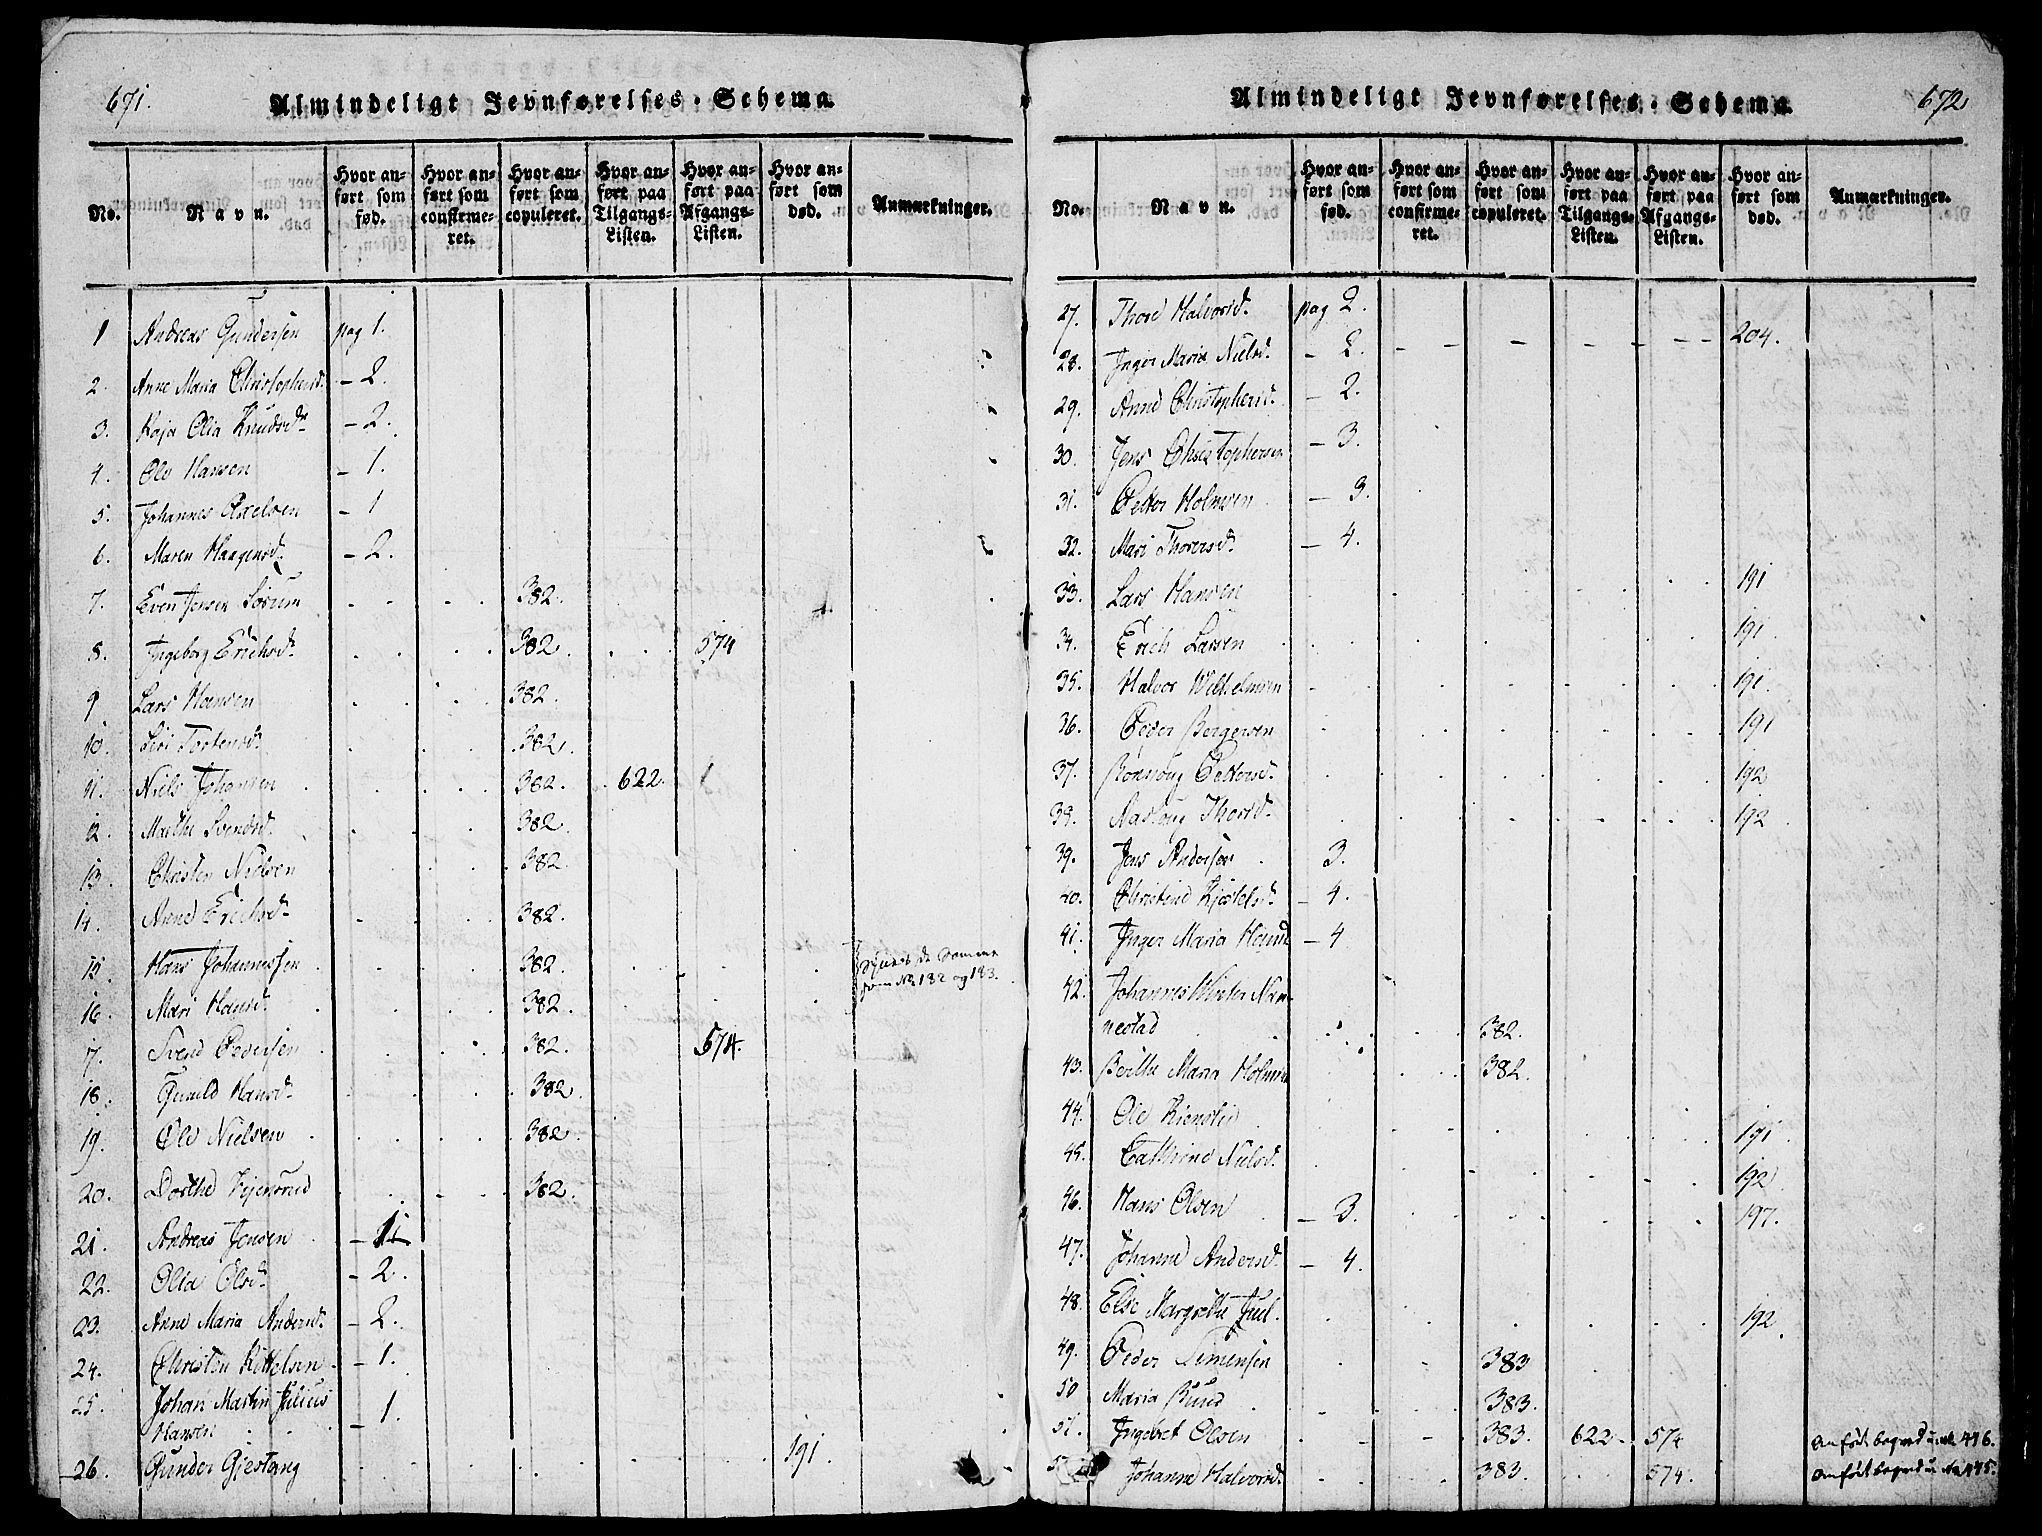 671.
Almindeligt Jevnførelses-Schema.
No. Navn. Hvor anført som fød. Hvor anført som confirmeret. Hvor anført som copuleret. Hvor anført paa Tilgangs-Listen. Hvor anført paa Afgangs-Listen. Hvor anført som død. Anmærkninger.
1 Andreas Gundersen pag 1.
2. Anne Maria Christophersd. - 2.
3. Kaja Olia Knudsdr - 2.
4. Ole Hansen - 1.
5. Johannes Axelsen - 1
6. Maren Haagensd. - 2.
7. Even Jensen Sørum 382.
8. Ingeborg Erichsd. 382. 574
9 Lars Hansen 382.
10. Siri Torstensd. 382.
11. Niels Johansen 382. 622.
12. Marthe Svendsd. 382.
13. Christen Nielsen 382.
14. Anne Erichsd. 382.
15. Hans Johannessen 382. de Samme
som No 182 og 183.
16. Mari Hansd. 382.
17. Svend Pedersen 382. 574.
18. Gunild Hansd. 382.
19. Ole Nielsen 382.
20. Dorthe Kjensrud 382.
21. Andreas Jensen - 1
22. Olia Olsd. - 2.
23. Anne Maria Andersd. - 2.
24. Christen Kittelsen - 1.
25. Johan Martin Julius
Hansen - 1.
26. Gunder Gjestang 191.
672
Almindeligt Jevnførelses-Schema.
No. Navn. Hvor anført som fød. Hvor anført som confirmeret. Hvor anført som copuleret. Hvor anført paa Tilgangs-Listen. Hvor anført paa Afgangs-Listen. Hvor anført som død. Anmærkninger.
27. Thore Halvorsd. pag 2.
28. Inger Maria Nielsd. - 2. 204.
29. Anne Christophersd. - 2.
30. Jens Christophersen - 3.
31. Petter Holmsen - 3.
32. Mari Thorersd. - 4.
33. Lars Hansen 191
34. Erich Larsen 191
35. Halvor Wilhelmsen 191.
36. Peder Bergersen 191
37. Rønnoug Pettersd. 192
38. Aasloug Thorsd. 192
39. Jens Andersen 3.
40. Christine Kjostelsd. - 4.
41. Inger Maria Hansd. - 4
42. Johannes Winter Nannestad 382.
43. Berthe Maria Holmsen 382.
44. Ole Kienslie 191.
45. Cathrine Nielsd. 192.
46. Hans Olsen - 3. 197.
47. Johanne Andersd. - 4.
48. Else Margrethe Juel. 192
49. Peder Simensen 383
50 Maria Lund 383.
51. Ingebret Olsen 383. 622. 574 Anført bagved u. No 476.
Johanne Halvorsd. 383. 574. Anført bagved u. No 475.